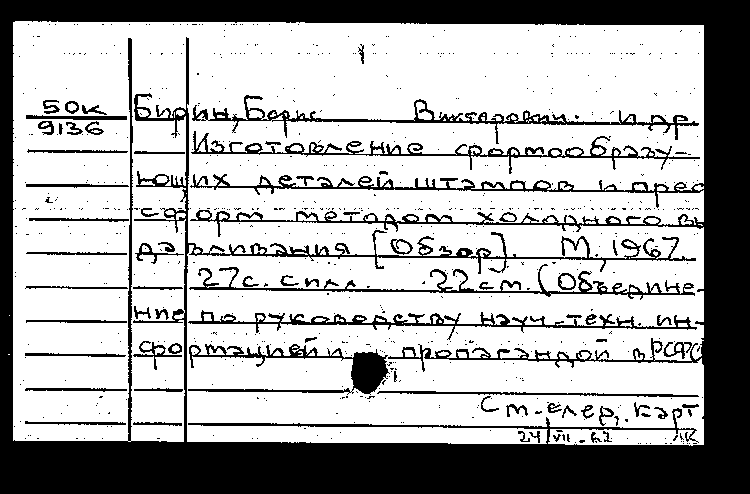 50К
9136
Бирин, Борис Викторович. и др.
Изготовление формообразу-
ющих деталей штампов и прес
сформ методом холодного вы
давливания [Обзор]. М., 1967.
27с. с илл. 22см. (Объедине-
ние по руководству науч.-техн. ин-
формацией и пропагандой в РСФС
См. след. карт.
24/VII-67 ЛК